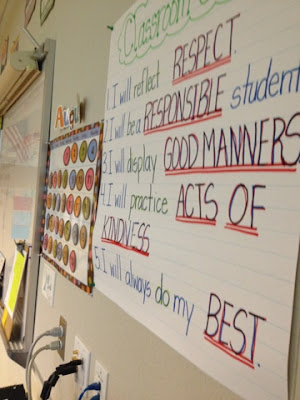 Classroom
1. I will reflect RESPECT.
2. I will be a RESPONSIBLE student
3. I will display GOOD MANNERS
4. I will practice ACTS OF
KINDNESS
5. I will always do my BEST.